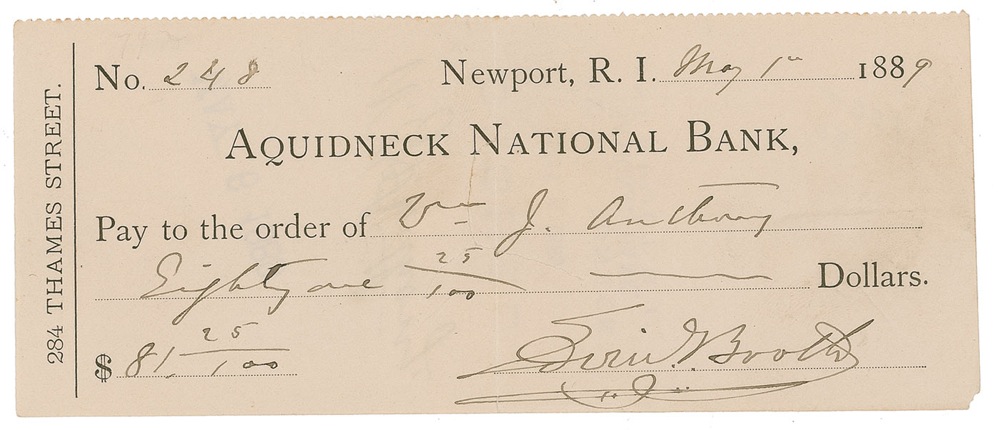 284 THAMES STREET.
No. 248 Newport, R. I. May 1st 1889
AQUIDNECK NATIONAL BANK,
Pay to the order of Wm J. Anthony
Eighty one 25/100 Dollars.
$ 81. 25/100
Edwin Booth